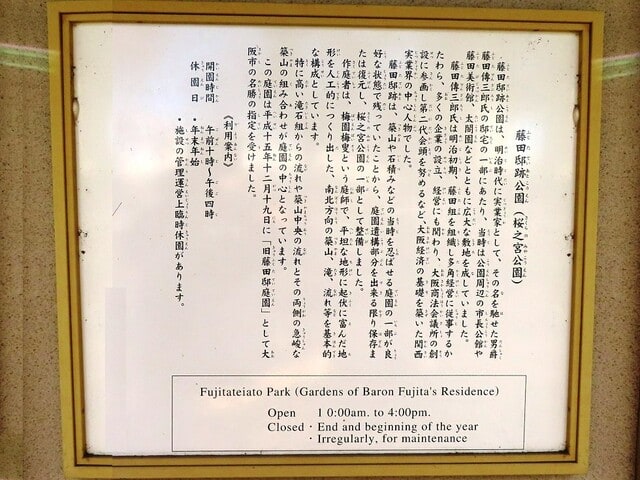 藤田邸跡公園（桜之宮公園）
藤田邸跡公園は、明治時代に実業家として、その名を馳せた男爵
藤田傳三郎氏の邸宅の一部にあたり、当時は公園周辺の市長公館や
藤田美術館、太閤園などとともに広大な敷地を成していました。
藤田傳三郎氏は明治初期、藤田組を組織し多角経営に従事するか
たわら、多くの企業の設立、経営にも関わり、大阪商法会議所の創
設に参画し第二代会頭を努めるなど、大阪経済の基礎を築いた関西
実業界の中心人物でした。
藤田邸跡は、築山や石積みなどの当時を忍ばせる庭園の一部が良
好な状態で残っていたことから、庭園遺構部分を出来る限り保存ま
たは復元し、桜之宮公園の一部として整備しました。
作庭者は、梅園梅叟という庭師で、平坦な地形に起伏に富んだ地
形を人工的につくり出した、南北方向の築山、滝、流れ等を基本的
な構成としています。
特に高い滝石組からの流れや築山中央の流れとその両側の急峻な
築山の組み合わせが庭園の中心となっています。
この庭園は平成十五年十二月十九日に「旧藤田邸庭園」として大
阪市の名勝の指定を受けました。
《利用案内》
開園時間　午前十時～午後四時
休園日　・年末年始
・施設の管理運営上臨時休園があります。
Fujitateiato Park (Gardens of Baron Fujita's Residence)
Open 1 0:00am. to 4:00pm.
Closed ・End and beginning of the year
・Irregularly, for maintenance